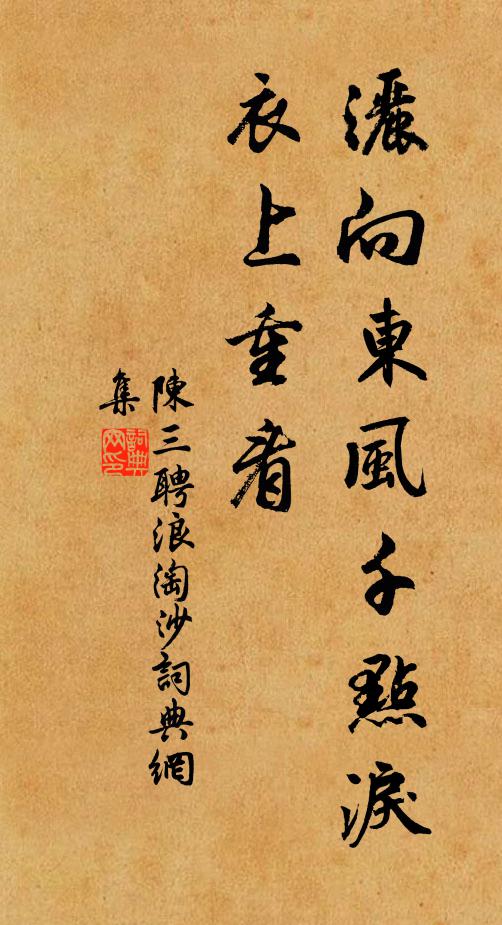 灑向東風千點淚
衣上重看
陳三聘浪淘沙詞典網
集
詞典
网印